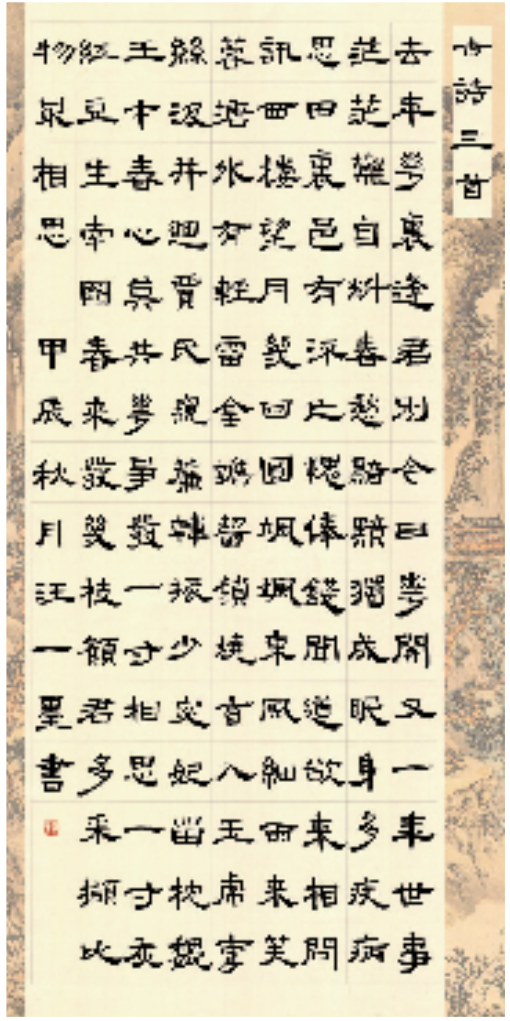 古詩三首
去年華裏逢君別今日華開又一年世事
茫茫難自料春愁黯黯獨成眠身多疾病
思田裏邑有流亾愧俸錢聞道欲來相問
訊西樓望月幾回圓颯颯東風細雨來芙
蓉塘外有輕雷金蟾齧鎖燒香入玉虎牽
絲汲井迴賈氏窺簾韓掾少宓妃留枕魏
王才春心莫共華爭發一寸相思一寸灰
紅豆生南國春來發幾枝願君多采擷此
物最相思 甲辰秋月汪一墨書